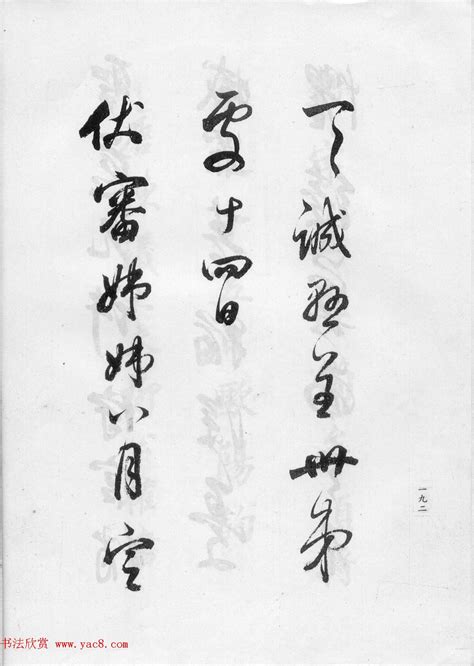 誠至卅弟
十四日
伏審姊姊八月
一九二
书法欣赏 www.yac8.com